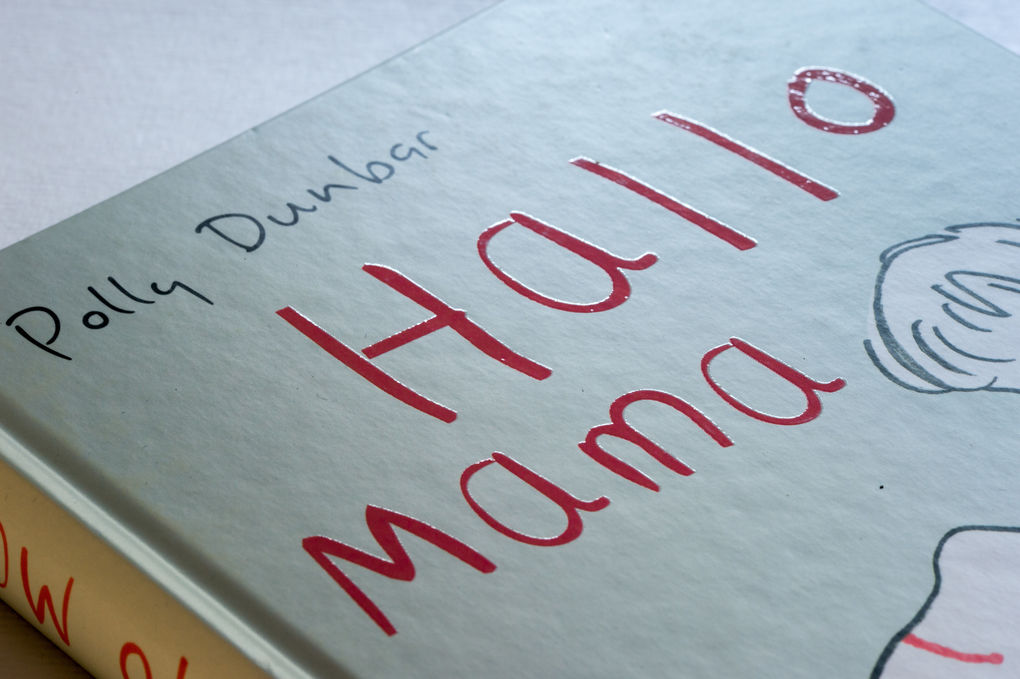 Polly Dunbar
Hallo
Mama